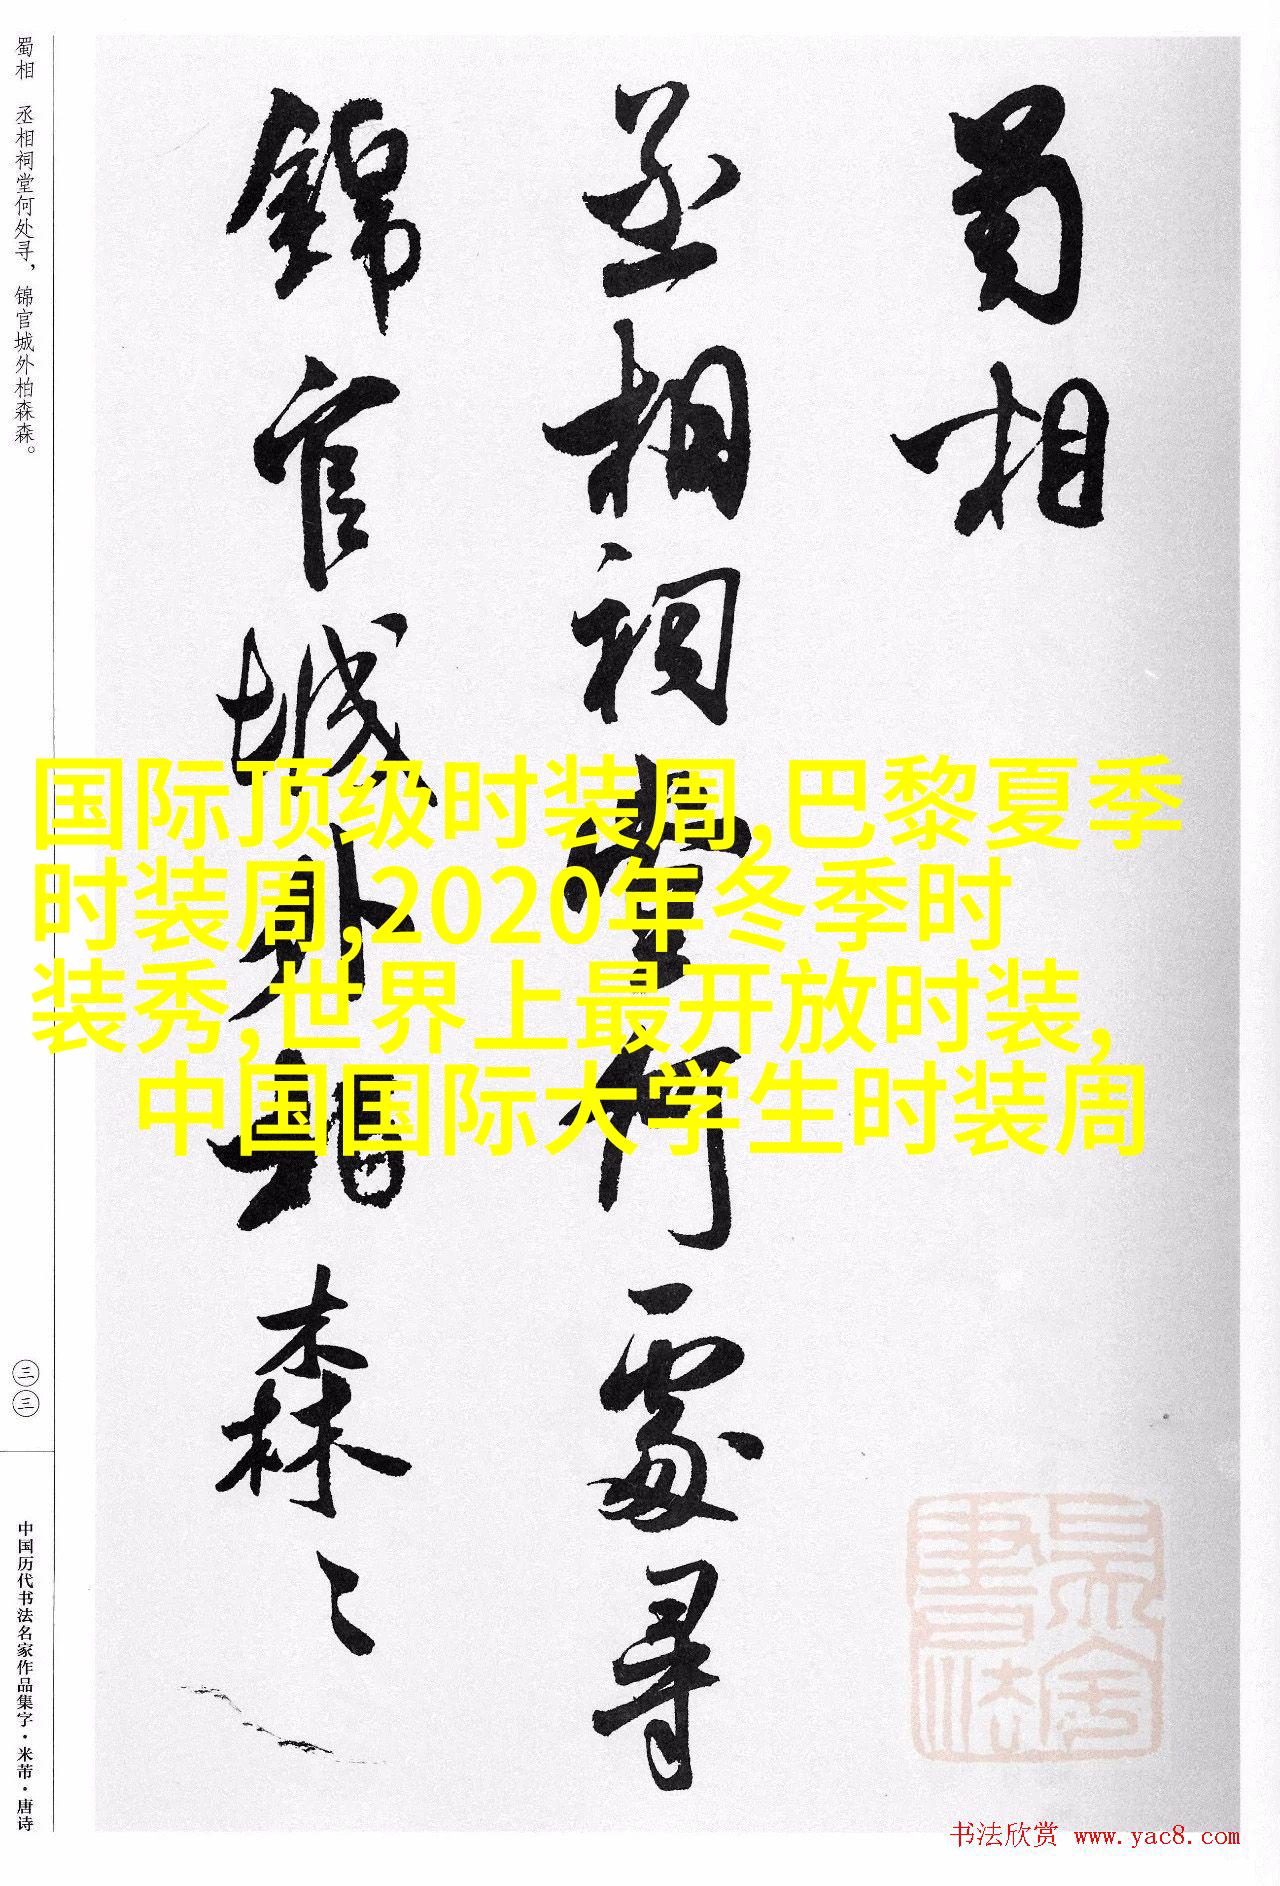 蜀相
丞相祠堂何處尋
錦官城外柏森〻
蜀相 丞相祠堂何处寻，锦官城外柏森森。
三三
中国历代书法名家作品集字·米芾·唐诗
国际顶级时装周,巴黎夏季
时装周,2020年冬季时
装秀,世界上最开放时装,
中国国际大学生时装周
书法欣赏 www.yac8.com